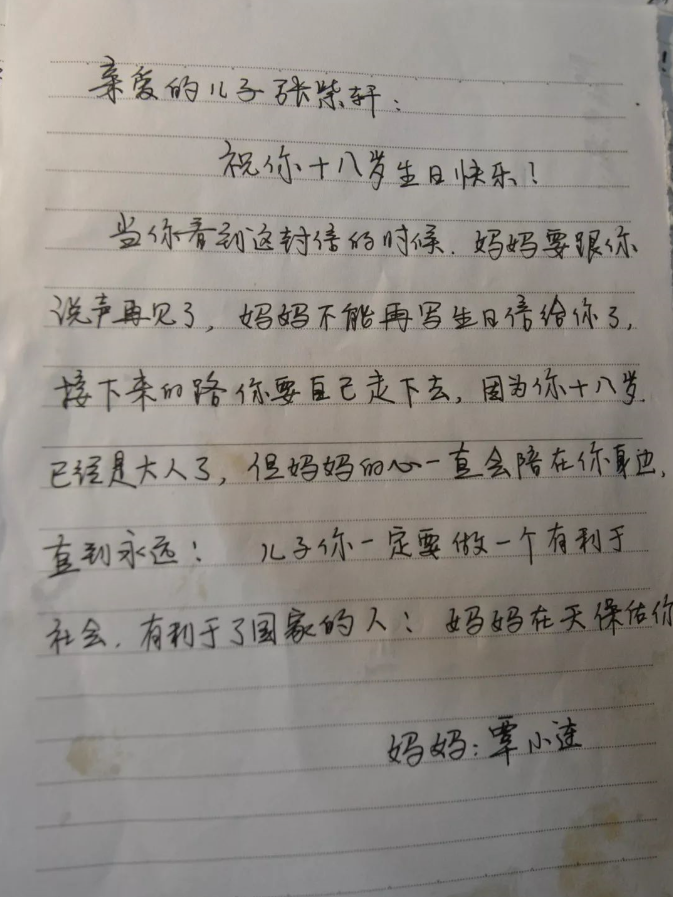 亲爱的儿子张紫轩:
祝你十八岁生日快乐!
当你看到这封信的时候.妈妈要跟你
说声再见了,妈妈不能再写生日信给你了,
接下来的路你要自己走下去,因为你十八岁.
已经是大人了,但妈妈的心一直会陪在你身边,
直到永远! 儿子你一定要做一个有利于
社会.有利于了国家的人!妈妈在天保佑你
妈妈:覃小连